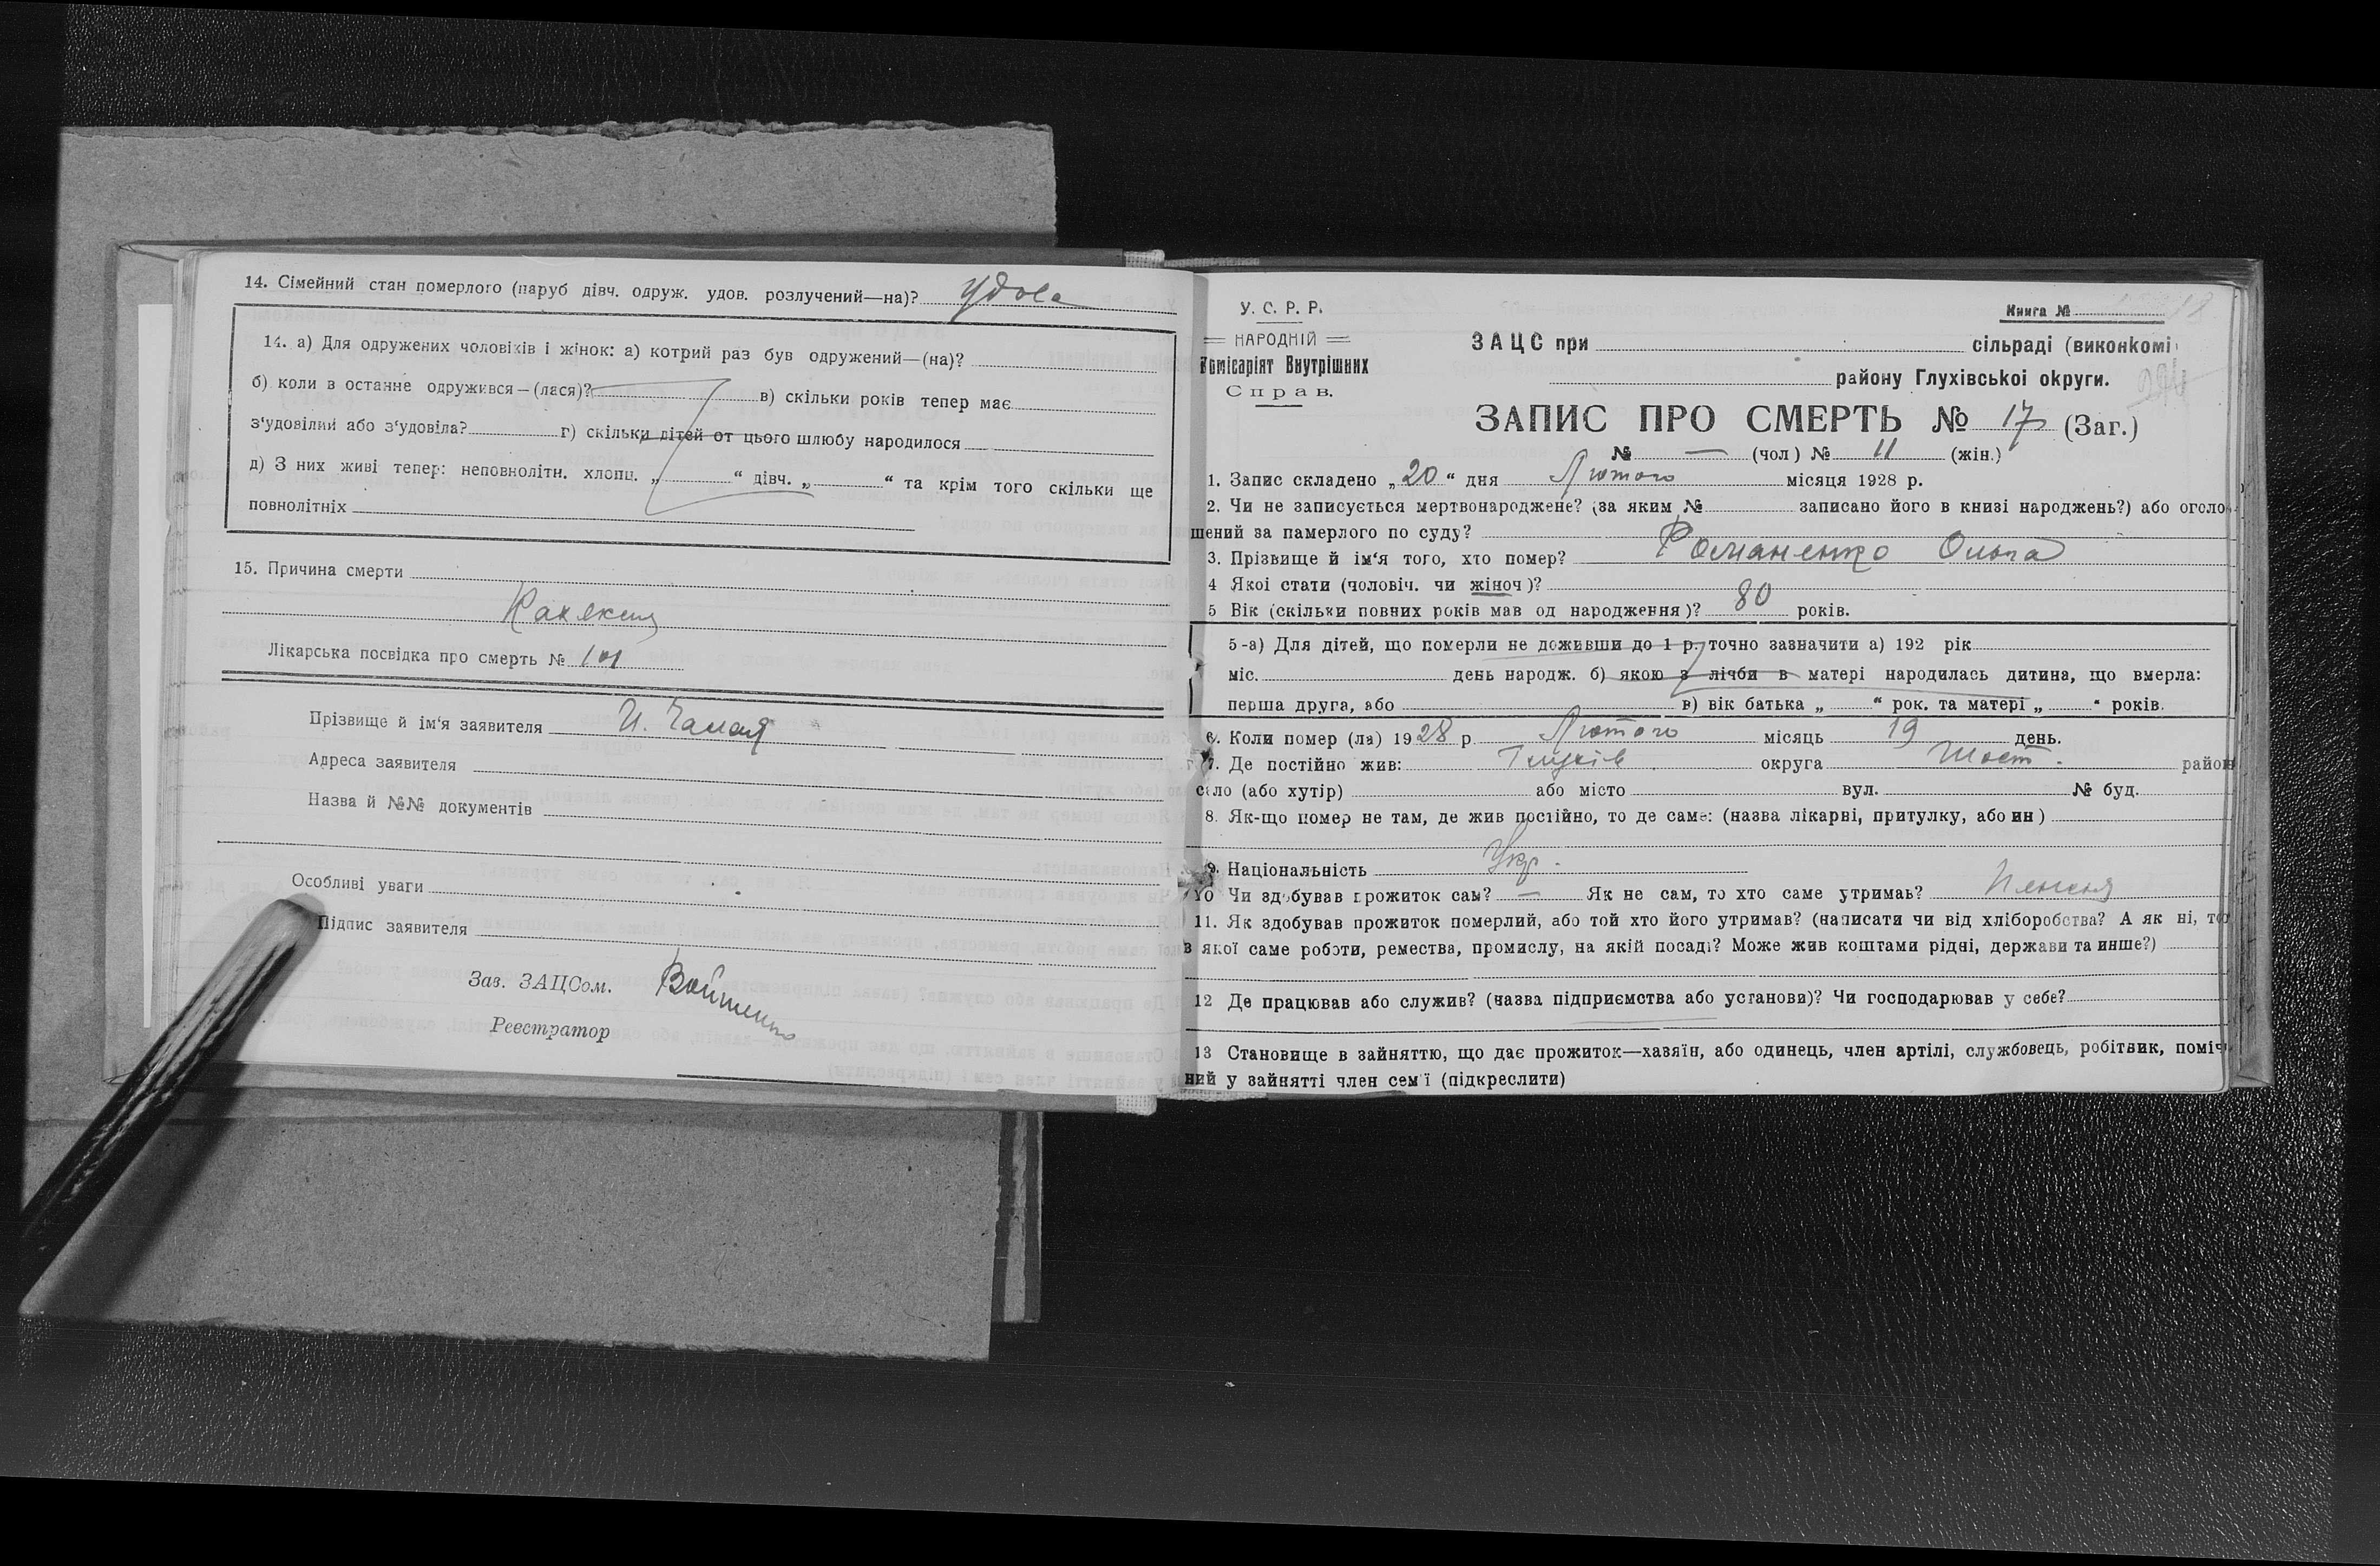 14. Сімейний стан померлого (паруб дівч. одруж. удов. розлучений—на)? удова
14. а) Для одружених чоловіків і жінок: а) котрий раз був одружений—(на)?
б) коли в останне одружився—(лася)? в) скільки років тепер має
з‘удовілий або з‘удовіла? г) скільки дітей от цього шлюбу народилося
д) З них живі тепер: неповнолітн. хлопц. „ “ дівч. „ “ та крім того скільки ще
повнолітніх
15. Причина смерти
Лікарська посвідка про смерть № 101
Прізвище й ім‘я заявителя И.
Адреса заявителя
Назва й №№ документів
Особливі уваги
Підпис заявителя
Зав. ЗАЦСом. Войтенко
Реєстратор
У. С. Р. Р.
НАРОДНІЙ
Комісаріят Внутрішних
Справ.
Книга № 18
ЗАЦС при сільраді (виконкомі
району Глухівської округи.
ЗАПИС ПРО СМЕРТЬ № 17 (Заг.)
№ — (чол) № 11 (жін.)
1. Запис складено „20“ дня Лютого місяця 1928 р.
2. Чи не записується мертвонароджене? (за яким № записано його в книзі народжень?) або оголо-
шений за памерлого по суду?
3. Прізвище й ім‘я того, хто помер? Романенко Ольга
4 Якоі стати (чоловіч. чи жіноч)?
5 Вік (скільки повних років мав од народження)? 80 років.
5-а) Для дітей, що померли не доживши до 1 р. точно зазначити а) 192 рік
міс. день народж. б) якою з лічби в матері народилась дитина, що вмерла:
перша друга, або в) вік батька „ “ рок. та матері „ “ років.
6. Коли помер (ла) 1928 р. Лютого місяць 19 день.
7. Де постійно жив: Глухів округа Шост. район
село (або хутір) або місто вул. № буд.
8. Як-що помер не там, де жив постійно, то де саме: (назва лікарні, притулку, або ин)
9. Національність Укр.
10 Чи здобував прожиток сам? — Як не сам, то хто саме утримав? Пенсія
11. Як здобував прожиток померлий, або той хто його утримав? (написати чи від хліборобства? А як ні, то
в якої саме роботи, ремества, промислу, на якій посаді? Може жив коштами рідні, держави та инше?)
12 Де працював або служив? (назва підприємства або установи)? Чи господарював у себе?
13 Становище в зайняттю, що дає прожиток—хазяїн, або одинець, член артілі, службовець, робітвик, поміч-
ний у зайнятті член сем‘ї (підкреслити)